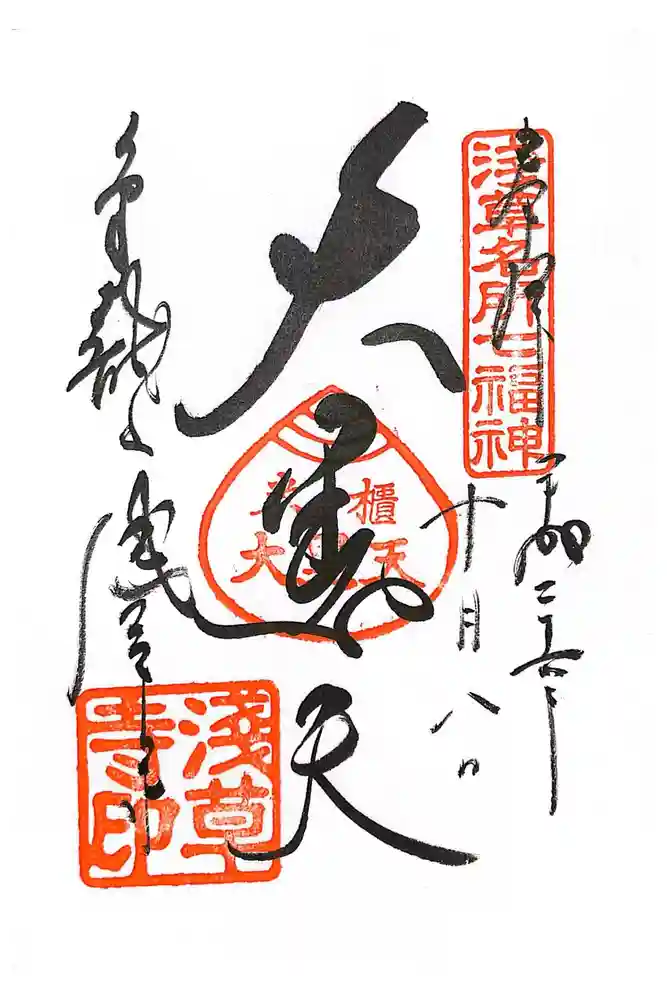 奉拝
浅草名所七福神
平成二十六年
十月八日
大黒天
米櫃
大黒天
金龍山 浅草寺
淺草寺印